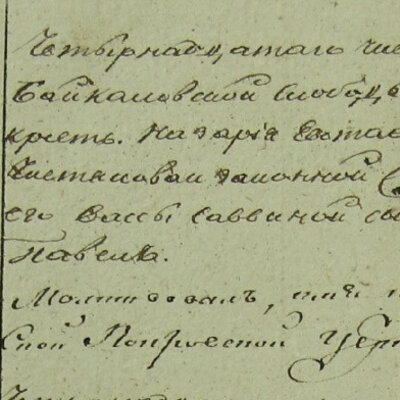 Четырнадцатаго чис
Байкаловской слободѣ
крест. Назарія Евстае
Евстаѳова законной
его Вассы Саввиной сы
Павелъ.
Молитвовалъ, имя н
ской Покровской Цер